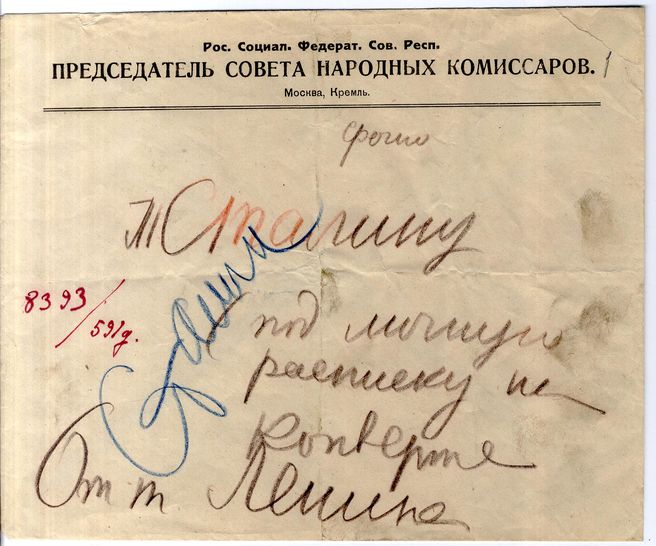 Рос. Социал. Федерат. Сов. Респ.
ПРЕДСЕДАТЕЛЬ СОВЕТА НАРОДНЫХ КОМИССАРОВ.
1
Москва, Кремль.
фото
т Сталину
Сталин
8393/591д.
под личную
расписку на
конверте
От т Ленина